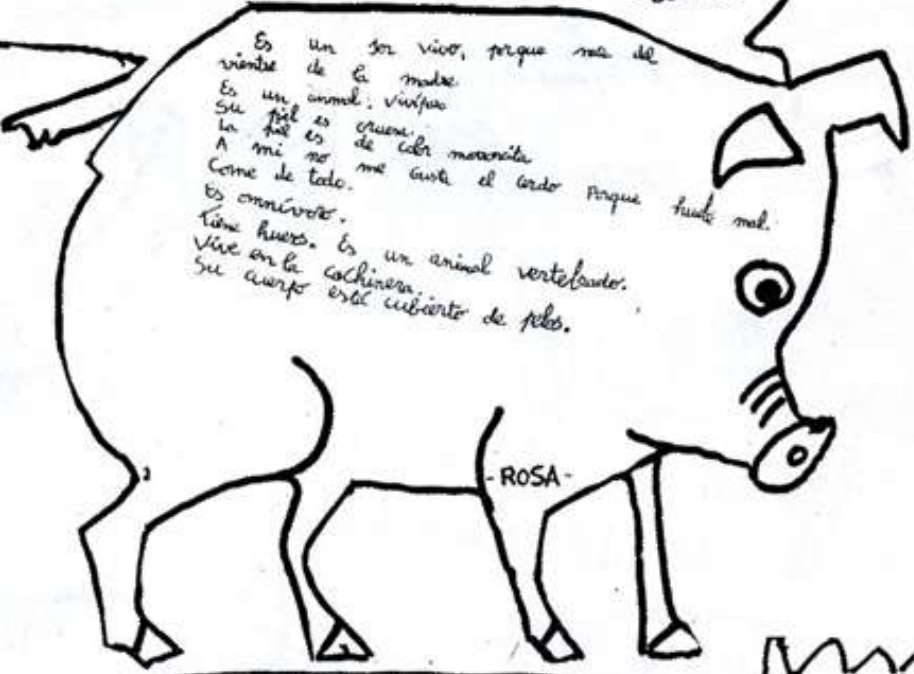 Es un ser vivo, porque nace del
vientre de la madre.
Es un animal vivíparo
Su piel es gruesa.
La piel es de color marroncita
A mi no me gusta el cerdo porque huele mal.
Come de todo.
Es omnívoro.
Tiene huesos. Es un animal vertebrado.
Vive en la cochinera.
Su cuerpo está cubierto de pelos.
-ROSA-